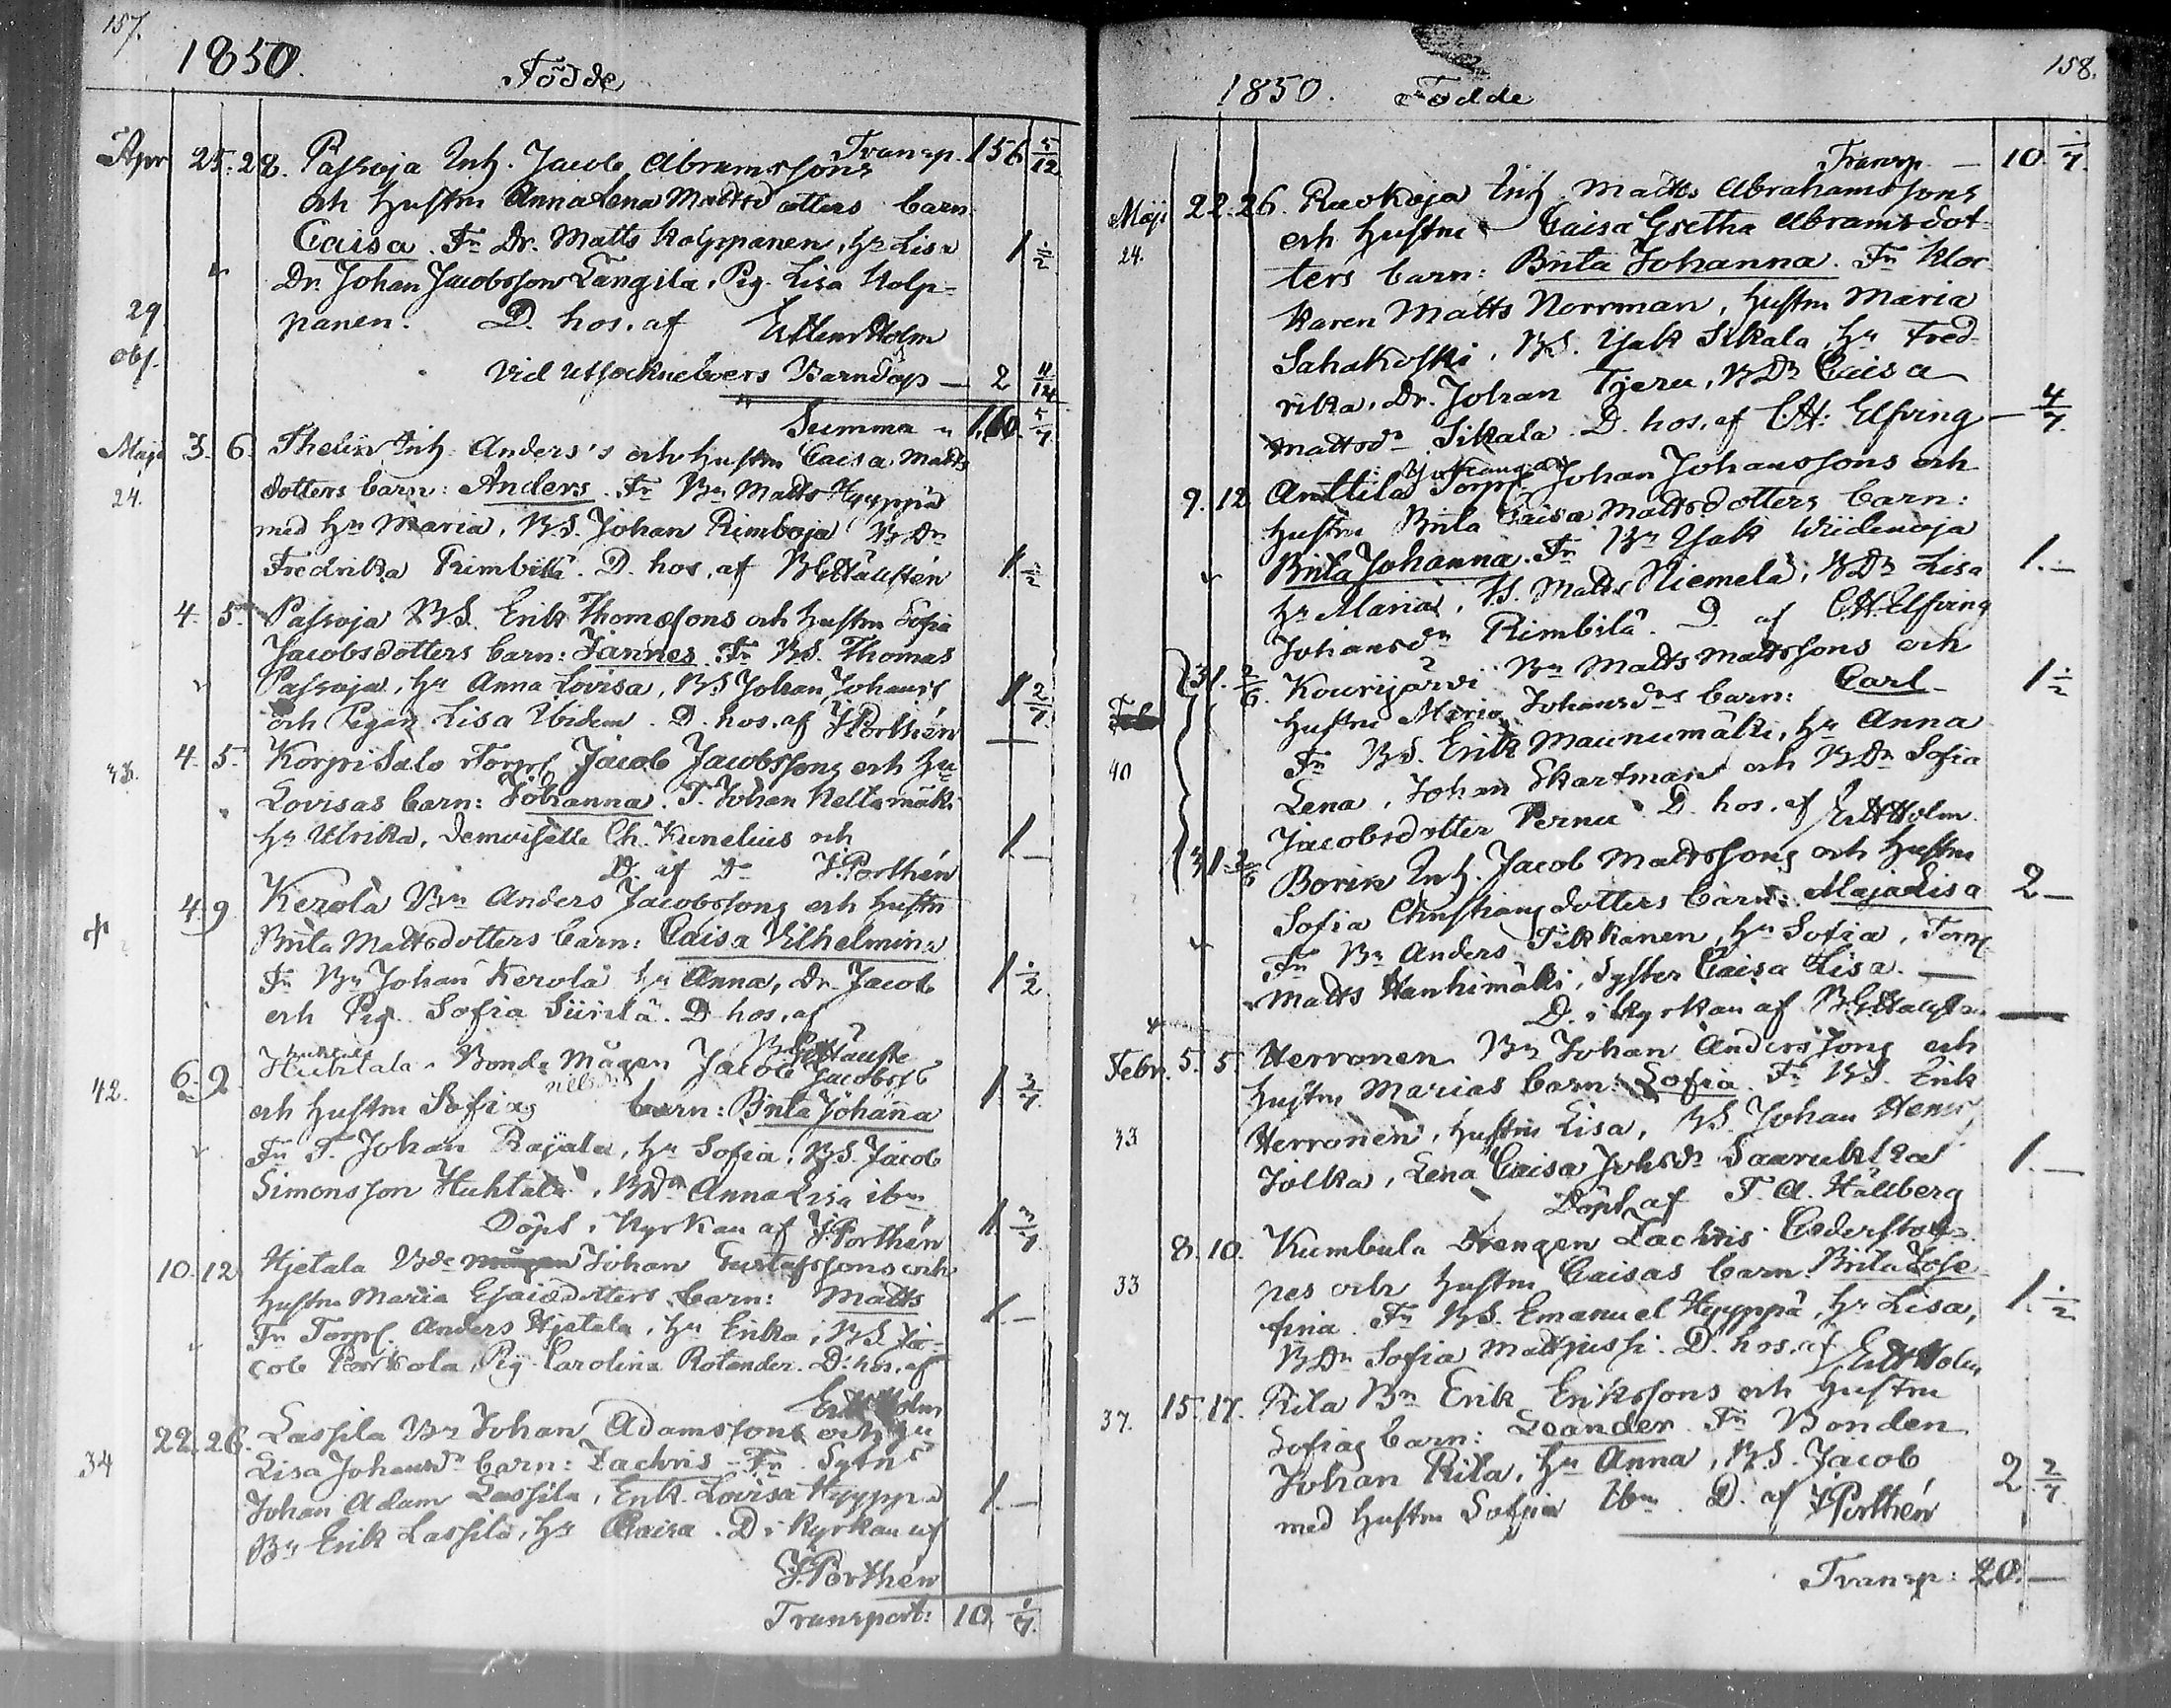 157.
1850.
Födde
Transp. 156 5/12
Apr 25. 28. Passoja Inh. Jacob Abramssons
och hustru Anna Lena Mattsdotters barn
Caisa. Fr Dr. Matts Holppanen, hr Lisa 1 1/2
Dr. Johan Jacobsson Langila, Pig. Lisa Holp-
29 panen. D. hos. af Holm
obs. Vid utsockneboers Barndop — 2 11/12
Summa " 160. 5/7
Maji 3. 6. Thelin Inh. Anders's och hustru Caisa Matts
24. dotters barn: Anders. Fr Bn Matts Hyyppä
med hr Maria, BS. Johan Rimboja BDr
Fredrika Rimbilä. D. hos. af Hällstén 1. 1/2
4. 5. Passoja BS. Erik Thomæsons och hustru Sofia
Jacobsdotters barn: Jannes. Fr BS. Thomas
Passoja, hr Anna Lovisa, BS Johan Johanss
och Pigan Lisa Ibidem. D. hos. af J. Porthén 1 2/7.
4. 5. Korpi Salo Torps Jacob Jacobssons och hu
Lovisas barn: Johanna. T. Johan Keltamäki
hr Ulrika, Demoiselle Ch. Kunelius och
D. af Dr J. Porthén 1. —
4. 9 Kerola Bn Anders Jacobssons och hustru
Brita Mattsdotters barn: Caisa Vilhelmina
Fr Bn Johan Kerola hr Anna, Dr. Jacob 1 1/2.
och Pig. Sofia Siirilä. D hos. af
Hällstén
42. 6. 9. Huhtala Bonde Mågen Jacob Jacobss
och hustru Sofias barn: Brita Johanna 1. 3/7.
Fr T. Johan Rajala, hr Sofia, BS. Jacob
Simonsson Huhtala, BDr Anna Lisa ibm
Döpt i Kyrkan af J. Porthén 1. 3/7
10. 12 Hjetala Bde Johan Gustafssons och
hustru Maria Esaiædotters barn: Matts
Fr Torps. Anders Hjetala, hr Erika, BS Ja- 1. —
cob Porkola, Pig. Carolina Rotander. D. hos. af
Holm
22. 26. Lassila Bn Johan Adamssons och hu
34 Lisa Johansdr barn: Zachris Fr Sytns
Johan Adam Lassila, Enk. Lovisa Hyyppä 1. —
Bn Erik Lassila, hr Caisa. D i Kyrkan af
J. Porthén
Transport: 10. 1/7.
158.
1850. Födde
Transp — 10. 1/7.
Maji 22. 26. Ravkoja Inh Matts Abrahamssons
24. och hustru Caisa Gretha Abramsdot-
ters barn: Brita Johanna. Fr Kloc-
karen Matts Norrman, hustru Maria
Sahakoski, BS. Isak Sikala, hr Fred-
rika, Dr. Johan Tjeru, BDr Caisa
Mattsdr Sikala. D. hos. af C.H. Elfving — 4/7.
9. 12 Anttila Torps Johan Johanssons och
hustru Brita Caisa Mattsdotters barn:
Brita Johanna. Fr Bn Isak Widenoja
hr Maria, BS. Matts Niemelä, BDr Lisa 1. —
Johansdr Rimbilä. D. af C.H. Elfving
31. 2/6. Kourijärvi Bn Matts Mattssons och
hustru Maria Johansdrs barn: Carl 1 1/2
Fr BS. Erik Maunumäki, hr Anna
40 Lena, Johan Skartman och BDr Sofia
Jacobsdotter Pernu. D. hos. af Holm.
31. 2/6 Borin Inh. Jacob Mattssons och hustru
Sofia Christiansdotters barn: Maja Lisa 2 —
Fr Bn Anders Pikkanen, hr Sofia, Torps
Matts Hanhimäki, Syster Caisa Lisa. —
D. i Kyrkan af Hällstén —
Febr. 5. 5. Herronen Bn Johan Anderssons och
hustru Marias barn: Sofia. Fr BS. Erik
33 Herronen, hustru Lisa, BS. Johan Henrs
Jolka, Lena Caisa Johsdr Saarukka 1. —
Döpt af F. A. Hällberg
8. 10. Kumbula Drengen Zachris Cederstol-
33 pes och hustru Caisas barn: Brita Jose-
fina. Fr BS. Emanuel Hyyppä, hr Lisa, 1. 1/2
BDr Sofia Mattjussi. D. hos. af Holm
37. 15. 17. Rila Bn Erik Erikssons och hustru
Sofias barn: Leander. Fr Bonden
Johan Rila, hr Anna, BS. Jacob
med hustru Sofia ibm. D. af J Porthén 2 2/7.
Transp: 20. —